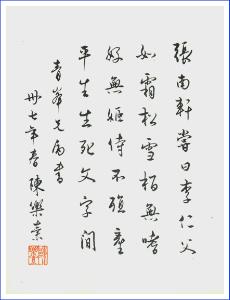 張南軒嘗曰李仁父
如霜松雪栢無嗜
好無姬侍不殖產
平生生死文字間
青峯兄屬書
卅七年春陳樂素